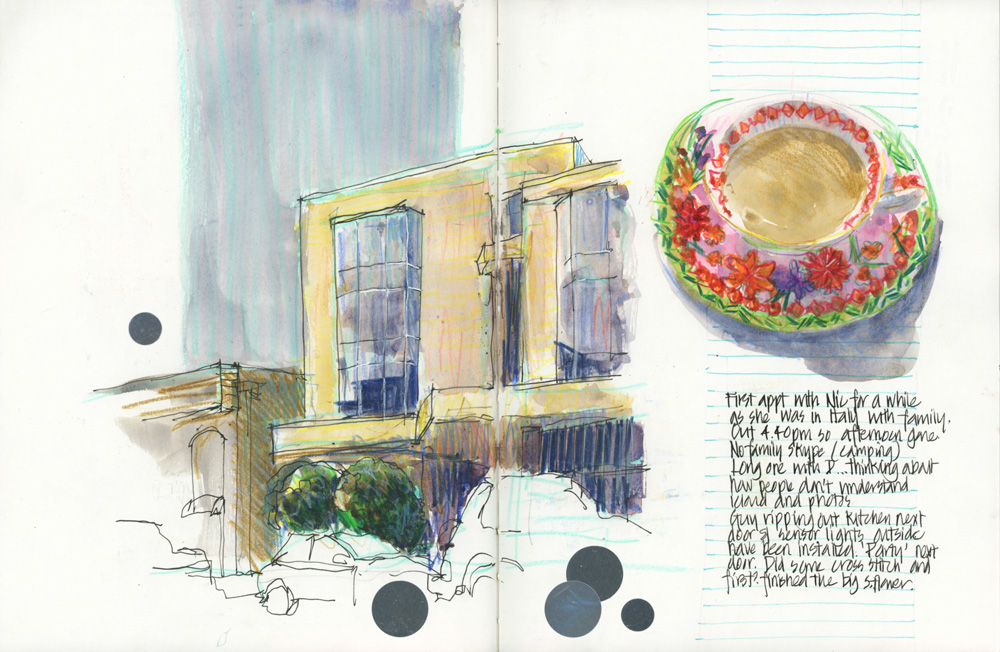 First appt with Nic for a while
as she was in Italy with family.
Out 4.40pm so afternoon gone.
No family skype (camping)
Long one with D...thinking about
how people don't understand
icloud and photos
Guy ripping out kitchen next
door & sensor lights outside
have been installed. 'Party' next
door. Did some cross stitch and
first? finished the big s.flower.